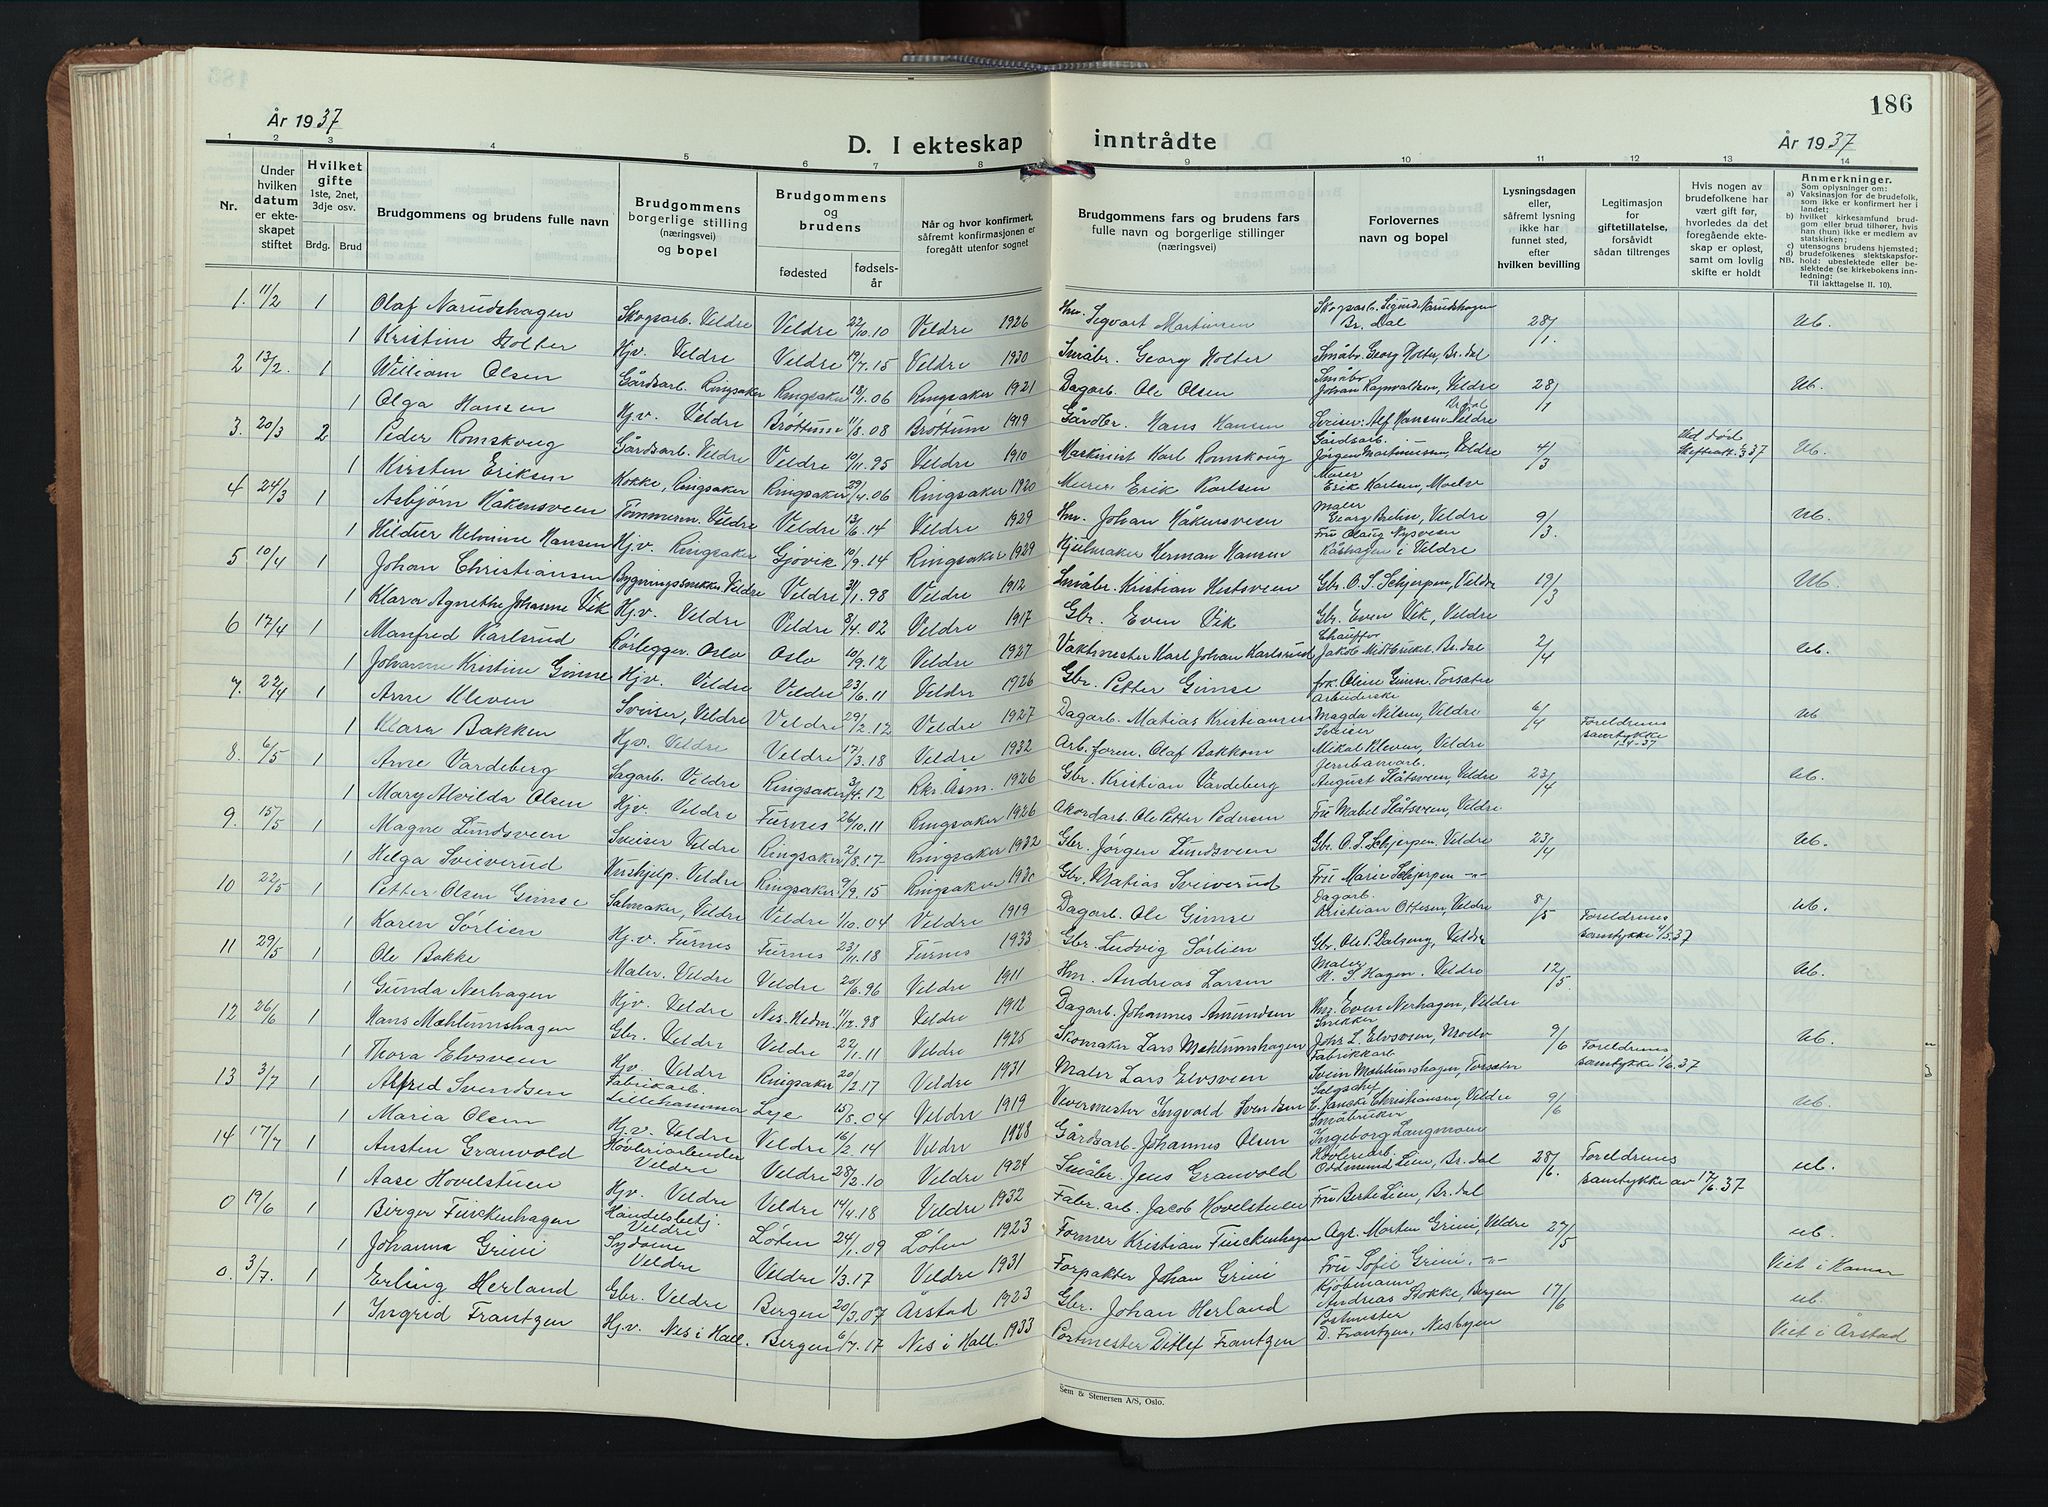 186
År 1937
D. I ekteskap inntrådte
År 1937
1 2 3 4 5 6 7 8 9 10 11 12 13 14
Nr.
Under hvilken datum er ekteskapet stiftet
Hvilket gifte 1ste, 2net, 3dje osv.
Brdg. Brud
Brudgommens og brudens fulle navn
Brudgommens borgerlige stilling (næringsvei) og bopel
Brudgommens og brudens
fødested
fødselsår
Når og hvor konfirmert, såfremt konfirmasjonen er foregått utenfor sognet
Brudgommens fars og brudens fars fulle navn og borgerlige stillinger (næringsvei)
Forlovernes navn og bopel
Lysningsdagen eller, såfremt lysning ikke har funnet sted, efter hvilken bevilling
Legitimasjon for giftetillatelse, forsåvidt sådan tiltrenges
Hvis nogen av brudefolkene har vært gift før, hvorledes da det foregående ekteskap er opløst, samt om lovlig skifte er holdt
Anmerkninger.
Som oplysninger om:
a) Vaksinasjon for de brudefolk, som ikke er konfirmert her i landet;
b) hvilket kirkesamfund brudgom eller brud tilhører, hvis han (hun) ikke er medlem av statskirken;
c) utensogns brudens hjemsted;
d) brudefolkenes slektskapsforhold: ubeslektede eller beslektede (se kirkebokens innledning:
NB. Til iakttagelse II. 10).
1. 11/2 1 Olaf Narudshagen Skogsarb. Veldre Veldre 22/10.10 Veldre 1926 Hm. Segvart Martinsen Skogsarb. Sigurd Narudshagen Br. Dal 28/1 Ub.
1 Kristine Holter Hjv. Veldre Veldre 19/7.15 Veldre 1930 Småbr. Georg Holter Småbr. Georg Holter, Br. dal
2 13/2. 1 William Olsen Gårdsarb. Ringsaker Ringsaker 18/1.06 Ringsaker 1921 Dagarb. Ole Olsen Småbr. Johan Ragnvaldsen, Veldre 28/1 Ub.
1 Olga Hansen Hj.v. Veldre Brøttum 11/8.08 Brøttum 1919 Gårdbr. Hans Hansen Sveiser Alf Hansen Veldre
3. 20/3 2 Peder Romskoug Gårdsarb. Veldre Veldre 10/11.95 Veldre 1910 Maskinist Karl Romskoug Gårdsarb. Jørgen Martinussen, Veldre 4/3 Ved død Ub.
1 Kirsten Eriksen Kokke, Ringsaker Ringsaker 29/4.06 Ringsaker 1920 Murer Erik Karlsen Murer Erik Karlsen, Moelv
4 24/3 1 Asbjørn Håkensveen Tømmerm. Veldre Veldre 13/6.14 Veldre 1929 Hm. Johan Håkensveen Maler Georg Brelin, Veldre 9/3. Ub.
1 Hildur Helmine Hansen Hj.v. Ringsaker Gjøvik 10/9.14 Ringsaker 1929 Hjulmaker Herman Hansen Fru Olaug Nysveen Kåshagen i Veldre
5 10/4 1 Johan Christiansen Bygningssnekker Veldre Veldre 31/1.98 Veldre 1912 Småbr. Kristian Hestsveen Gbr. O. S. Schjerpen, Veldre 19/3 Ub.
1 Klara Agnethe Johanne Vik Hj.v. Veldre Veldre 8/4.02 Veldre 1917 Gbr. Even Vik Gbr. Even Vik, Veldre
6 17/4 1 Manfred Karlsrud Rørlegger. Oslo Oslo 10/9.12 Veldre 1927 Vaktmester Karl Johan Karlsrud Chauffør Jakob Midtbruket Br. dal 2/4 Ub.
1 Johanne Kristine Gimse Hjv. Veldre Veldre 23/6.11 Veldre 1926 Gbr. Petter Gimse frk. Oline Gimse. Torsæter
7. 22/4 1 Arne Kleven Sveiser, Veldre Veldre 29/2.12 Veldre 1927 Dagarb. Matias Kristiansen Arbeiderske Magda Nilsen, Veldre 6/4 Foreldrenes samtykke 1-4-37 Ub
1 Klara Bakken Hjv. Veldre Veldre 17/3.18 Veldre 1932 Arb. form. Olaf Bakken Sveiser Mikal Kleven, Veldre
8. 6/5 1 Arne Vardeberg Sagarb. Veldre Ringsaker 3/4.12 Rkr. Åsm. 1926 Gbr. Kristian Vardeberg Jernbanearb. August Slåtsveen, Veldre 23/4 Ub.
1 Mary Alvilda Olsen Hjv. Veldre Furnes 26/10.11 Ringsaker 1926 Akordarb. Ole Petter Pedersen Fru Mabel Slåtsveen, Veldre
9. 15/5 1 Magne Lundsveen Sveiser Veldre Ringsaker 2/8.17 Ringsaker 1932 Gbr. Jørgen Lundsveen Gbr. O. S. Schjerpen. Veldre 23/4 Ub.
1 Helga Sveiverud Hushjelp. Veldre Ringsaker 9/9.15 Ringsaker 1930 Gbr. Matias Sveiverud Fru Marie Schjerpen -"-
10 22/5 1 Petter Olsen Gimse Salmaker, Veldre Veldre 1/10.04 Veldre 1919 Dagarb. Ole Gimse Dagarb. Kristian Ottesen, Veldre 8/5 Foreldrenes samtykke 4/5.37 Ub.
1 Karen Sørlien Hj.v. Furnes Furnes 23/11.18 Furnes 1933 Gbr. Ludvig Sørlien Gbr. Ole P. Dalseng, Veldre
11 29/5 1 Ole Bakke Maler. Veldre Veldre 20/6.96 Veldre 1911 Hm. Andreas Larsen Maler H. S. Hagen. Veldre 12/5. Ub.
1 Gunda Nerhagen Hjv. Veldre Nes. Hedm. 11/12.98 Veldre 1912 Dagarb. Johannes Amundsen Hm. Even Nerhagen, Veldre
12 26/6 1 Hans Mæhlumshagen Gbr. Veldre Veldre 22/1.11 Veldre 1925 Skomaker Lars Mæhlumshagen Snekker Johs L. Elvsveen, Moelv 9/6 Foreldrenes samtykke 1/6.37 Ub.
1 Thora Elvsveen Hjv. Veldre Ringsaker 20/2.17 Veldre 1931 Maler Lars Elvsveen Fabrikkarb. Svein Mæhlumshagen, Torsæter
13 3/7 1 Alfred Svendsen Fabrikarb. Lillehammer Leje 15/8.04 Veldre 1919 Vevermester Ingvald Svendsen Salgschef C. Jancke Christiansen, Veldre 9/6 Ub.
1 Maria Olsen Hj.v. Veldre Veldre 16/2.14 Veldre 1928 Gårdsarb. Johannes Olsen Småbruker Ingeborg Langmoen
14 17/7 1 Austen Granvold Høvleriarbeider Veldre Veldre 28/2.10 Veldre 1924 Småbr. Jens Granvold Høvleriarb. Oddmund Lien, Br. dal 28/6. Foreldrenes samtykke av 17/6.37 Ub.
1 Aase Hovelstuen Hjv. Veldre Veldre 14/4.18 Veldre 1932 Fabr. arb. Jacob Hovelstuen Fru Berte Lien, Br. dal
0 19/6 1 Birger Furckenhagen Handelsbetj. Veldre Løten 24/1.09 Løten 1923 Former Kristian Furckenhagen Agr. Morten Grini, Veldre 27/5 ub.
1 Johanna Grini Sydame Veldre Veldre 1/3.17 Veldre 1931 Forpakter Johan Grini Fru Sofie Grini, -"- Viet i Hamar
0. 3/7. 1 Erling Herland Gbr. Veldre Bergen 20/3.07 Årstad 1923 Gbr. Johan Herland Kjøbmann Andreas Stokke, Bergen 17/6 ub.
1 Ingrid Frantzen Hj.v. Nes i Hall. Bergen 6/7.17 Nes i Hall. 1933 Postmester Ditlef Frantzen Postmester D. Frantzen, Nesbyen Viet i Årstad
Sem & Stenersen A/S, Oslo.